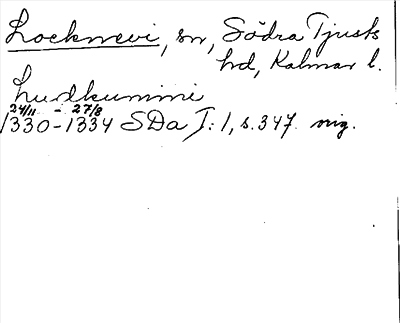 Locknevi, sn, Södra Tjusts
hd, Kalmar l.
Ludkumme
24/11 - 27/8
1330-1334 SDa I: 1, s. 347. orig.